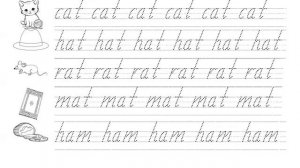 cat cat cat cat cat cat
hat hat hat hat hat hat
rat rat rat rat rat rat
mat mat mat mat mat
ham ham ham ham ham